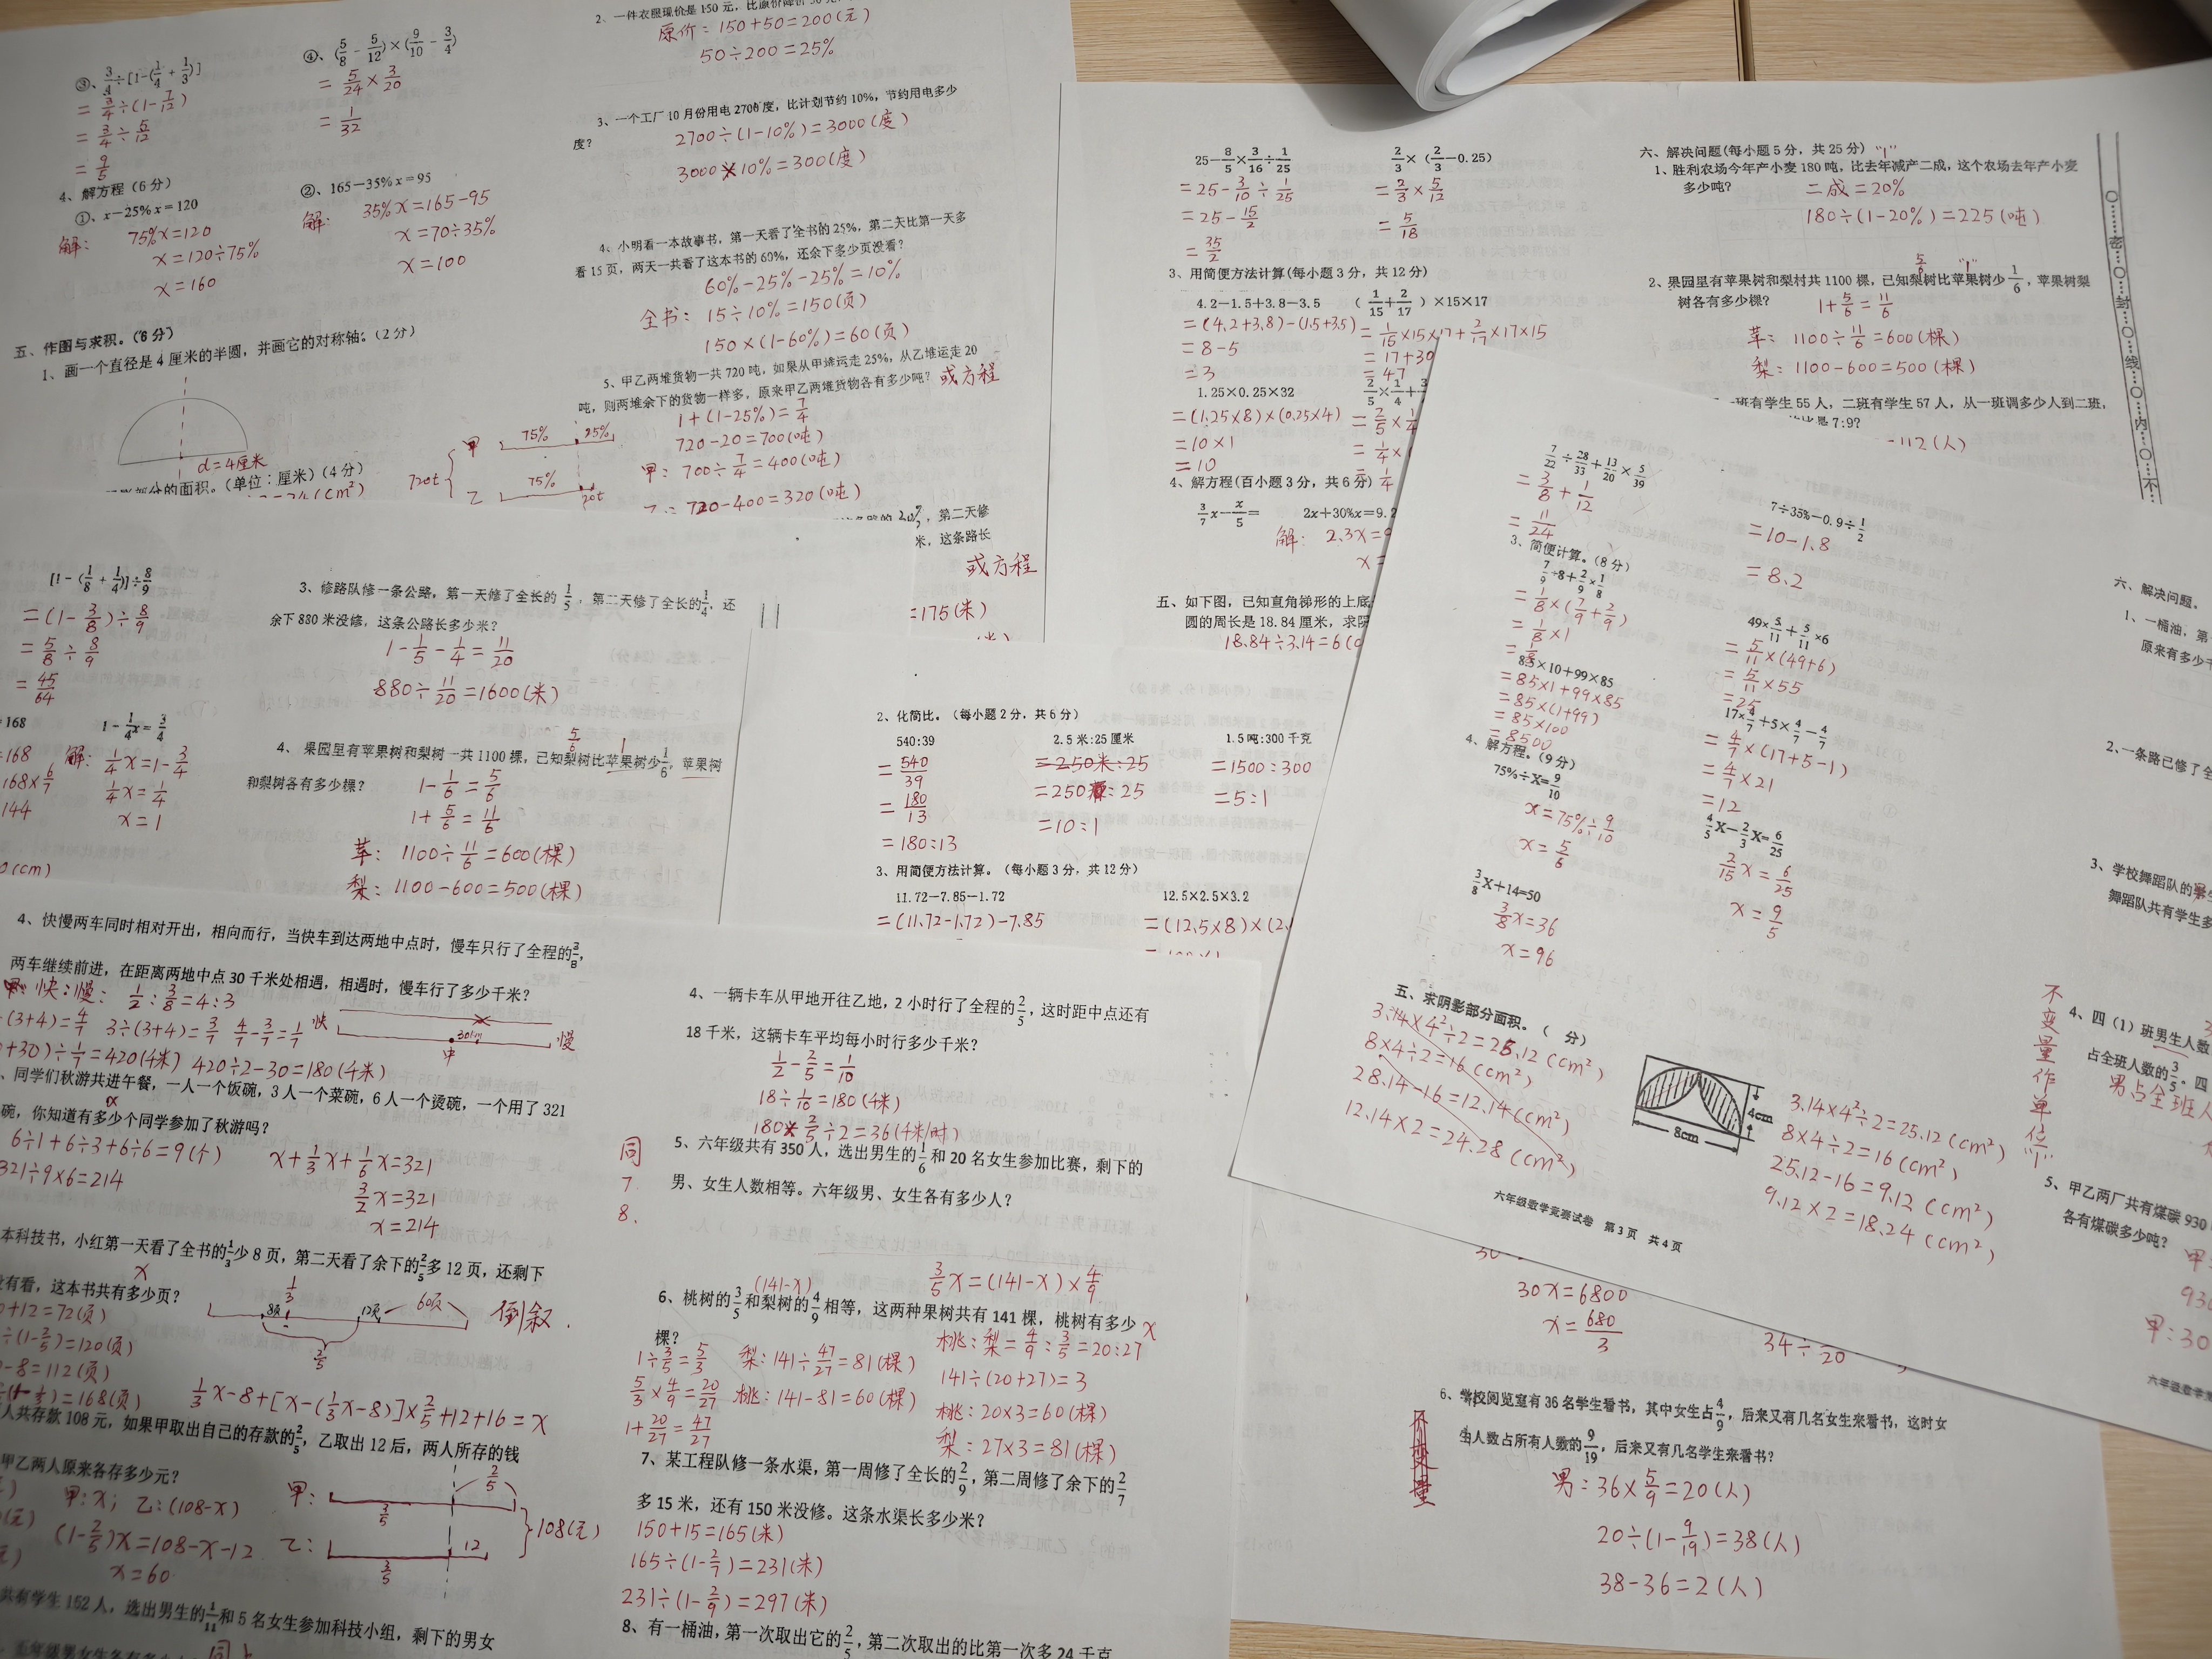 ③、3/4÷[1-(1/4+1/3)]
=3/4÷(1-7/12)
=3/4÷5/12
=9/5
④、(5/8-5/12)×(9/10-3/4)
=5/24×3/20
=1/32
4、解方程（6分）
①、x-25%x=120
解：75%x=120
x=120÷75%
x=160
②、165-35%x=95
解：35%x=165-95
x=70÷35%
x=100
五、作图与求积。（6分）
1、画一个直径是4厘米的半圆，并画它的对称轴。（2分）
d=4厘米
分的面积。（单位：厘米）（4分）
2、一件衣服现价是150元，比原价降价
原价：150+50=200(元)
50÷200=25%
3、一个工厂10月份用电2700度，比计划节约10%，节约用电多少
度？
2700÷(1-10%)=3000(度)
3000×10%=300(度)
4、小明看一本故事书，第一天看了全书的25%，第二天比第一天多
看15页，两天一共看了这本书的60%，还余下多少页没看？
60%-25%-25%=10%
全书：15÷10%=150(页)
150×(1-60%)=60(页)
5、甲乙两堆货物一共720吨，如果从甲堆运走25%，从乙堆运走20
吨，则两堆余下的货物一样多，原来甲乙两堆货物各有多少吨？ 或方程
1+(1-25%)=7/4
720-20=700(吨)
甲：700÷7/4=400(吨)
720-400=320(吨)
720t
甲 75% 25%
乙 75% 20t
，第二天修
米，这条路长
或方程
=175(米)
25-8/5×3/16÷1/25
=25-3/10÷1/25
=25-15/2
=35/2
2/3×（2/3-0.25）
=2/3×5/12
=5/18
3、用简便方法计算(每小题3分，共12分)
4.2-1.5+3.8-3.5
=(4.2+3.8)-(1.5+3.5)
=8-5
=3
（1/15+2/17）×15×17
=1/15×15×17+2/17×17×15
=17+30
=47
1.25×0.25×32
=(1.25×8)×(0.25×4)
=10×1
=10
2/5×1/4+3
=2/5×1/4
=1/4×
=1/4
4、解方程(百小题3分，共6分)
3/7x-x/5=
2x+30%x=9.2
解：2.3x=9
x=
五、如下图，已知直角梯形的上底
圆的周长是18.84厘米，求阴
18.84÷3.14=6(c
六、解决问题(每小题5分，共25分)
1、胜利农场今年产小麦180吨，比去年减产二成，这个农场去年产小麦
多少吨？
二成=20%
180÷(1-20%)=225(吨)
2、果园里有苹果树和梨村共1100棵，已知梨树比苹果树少1/6，苹果树梨
树各有多少棵？
5/6 "1"
1+5/6=11/6
苹：1100÷11/6=600(棵)
梨：1100-600=500(棵)
班有学生55人，二班有学生57人，从一班调多少人到二班，
比是7:9？
112(人)
○……密……○……封……○……线……○……内……○……不
[1-(1/8+1/4)]÷8/9
=(1-3/8)÷8/9
=5/8÷8/9
=45/64
=168
=168
168×6/7
144
1-1/4x=3/4
解：1/4x=1-3/4
1/4x=1/4
x=1
(cm)
3、修路队修一条公路，第一天修了全长的1/5，第二天修了全长的1/4，还
余下880米没修，这条公路长多少米？
1-1/5-1/4=11/20
880÷11/20=1600(米)
4、果园里有苹果树和梨树一共1100棵，已知梨树比苹果树少1/6，苹果树
和梨树各有多少棵？
5/6 1
1-1/6=5/6
1+5/6=11/6
苹：1100÷11/6=600(棵)
梨：1100-600=500(棵)
2、化简比。（每小题2分，共6分）
540:39
=540/39
=180/13
=180:13
2.5米:25厘米
=250米:25
=250:25
=10:1
1.5吨:300千克
=1500:300
=5:1
3、用简便方法计算。（每小题3分，共12分）
11.72-7.85-1.72
=(11.72-1.72)-7.85
12.5×2.5×3.2
=(12.5×8)×(2.
7/22÷28/33+13/20×5/39
=3/8+1/12
=11/24
7÷35%-0.9÷1/2
=10-1.8
=8.2
3、简便计算。（8分）
7/9÷8+2/9×1/8
=1/8×(7/9+2/9)
=1/8×1
=1/8
49×5/11+5/11×6
=5/11×(49+6)
=5/11×55
=25
8.5×10+99×85
=85×1+99×85
=85×(1+99)
=85×100
=8500
17×4/7+5×4/7-4/7
=4/7×(17+5-1)
=4/7×21
=12
4、解方程。（9分）
75%÷X=9/10
x=75%÷9/10
x=5/6
4/5X-2/3X=6/25
2/15x=6/25
x=9/5
3/8X+14=50
3/8x=36
x=96
五、求阴影部分面积。（ 分）
3.14×4²÷2=25.12(cm²)
8×4÷2=16(cm²)
28.14-16=12.14(cm²)
12.14×2=24.28(cm²)
4cm
8cm
3.14×4²÷2=25.12(cm²)
8×4÷2=16(cm²)
25.12-16=9.12(cm²)
9.12×2=18.24(cm²)
六年级数学竞赛试卷 第3页 共4页
六、解决问题。
1、一桶油，第
原来有多少千
2、一条路已修了全
3、学校舞蹈队的男生
舞蹈队共有学生多
不变量作单位1
4、四（1）班男生人数
占全班人数的3/5。四
男占全班人
5、甲乙两厂共有煤碳930
各有煤碳多少吨？
甲
930
甲：30
六年级数学竞
4、快慢两车同时相对开出，相向而行，当快车到达两地中点时，慢车只行了全程的3/8，
两车继续前进，在距离两地中点30千米处相遇，相遇时，慢车行了多少千米？
快：慢：1/2：3/8=4：3
÷(3+4)=4/7 3÷(3+4)=3/7 4/7-3/7=1/7
+30)÷1/7=420(千米) 420÷2-30=180(千米)
快 30km 中 慢
、同学们秋游共进午餐，一人一个饭碗，3人一个菜碗，6人一个烫碗，一个用了321
碗，你知道有多少个同学参加了秋游吗？
6÷1+6÷3+6÷6=9(个)
321÷9×6=214
x+1/3x+1/6x=321
3/2x=321
x=214
本科技书，小红第一天看了全书的1/3少8页，第二天看了余下的2/5多12页，还剩下
没有看，这本书共有多少页？
x
1/3 8页 12页 60页 2/5
倒叙.
+12=72(页)
÷(1-2/5)=120(页)
-8=112(页)
=168(页)
1/3x-8+[x-(1/3x-8)]×2/5+12+16=x
人共存款108元，如果甲取出自己的存款的2/5，乙取出12后，两人所存的钱
甲乙两人原来各存多少元？
甲：x；乙：(108-x)
(1-2/5)x=108-x-12
x=60
甲： 3/5 2/5
乙： 3/5 12
108(元)
共有学生152人，选出男生的1/11和5名女生参加科技小组，剩下的男女
同上
4、一辆卡车从甲地开往乙地，2小时行了全程的2/5，这时距中点还有
18千米，这辆卡车平均每小时行多少千米？
1/2-2/5=1/10
18÷1/10=180(千米)
180×2/5÷2=36(千米/时)
同
7
8.
5、六年级共有350人，选出男生的1/6和20名女生参加比赛，剩下的
男、女生人数相等。六年级男、女生各有多少人？
(141-x)
3/5x=(141-x)×4/9
6、桃树的3/5和梨树的4/9相等，这两种果树共有141棵，桃树有多少
棵？
x
1÷3/5=5/3
5/3×4/9=20/27
1+20/27=47/27
梨：141÷47/27=81(棵)
桃：141-81=60(棵)
桃：梨=4/9：3/5=20:27
141÷(20+27)=3
桃：20×3=60(棵)
梨：27×3=81(棵)
7、某工程队修一条水渠，第一周修了全长的2/9，第二周修了余下的2/7
多15米，还有150米没修。这条水渠长多少米？
150+15=165(米)
165÷(1-2/7)=231(米)
231÷(1-2/9)=297(米)
8、有一桶油，第一次取出它的2/5，第二次取出的比第一次多24千克
30x=6800
x=680/3
34÷ 20
6、学校阅览室有36名学生看书，其中女生占4/9，后来又有几名女生来看书，这时女
生人数占所有人数的9/19，后来又有几名学生来看书？
不变量
男：36×5/9=20(人)
20÷(1-9/19)=38(人)
38-36=2(人)